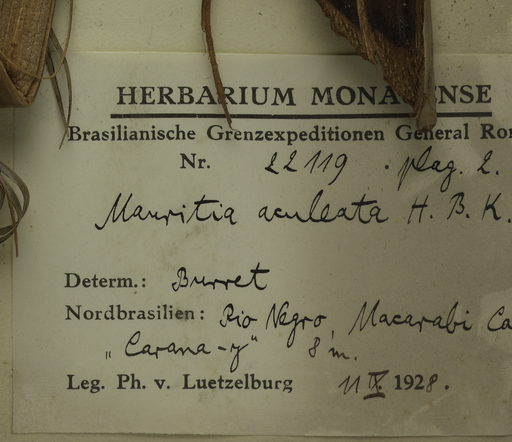 HERBARIUM MONACENSE
Brasilianische Grenzexpeditionen General Ron
Nr. 22119 . plag. 2.
Mauritia aculeata H. B. K.
Determ.: Burret
Nordbrasilien: Rio Negro, Macarabi Ca
„Carana-y“ 8 m.
Leg. Ph. v. Luetzelburg 11 IX 1928.